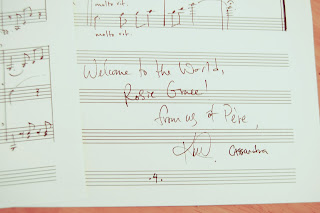 molto rit.
molto rit.
Welcome to the World,
Rosie Grace!
from us at Père,
Cassandra
.4.